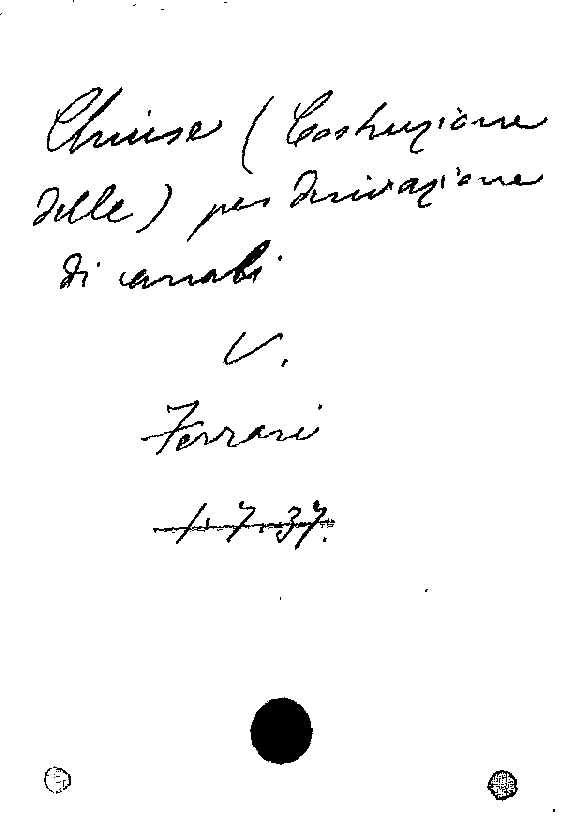 Chiuse (Costruzione
delle) per derivazione
di canali
V.
Ferrari
1.7.37.